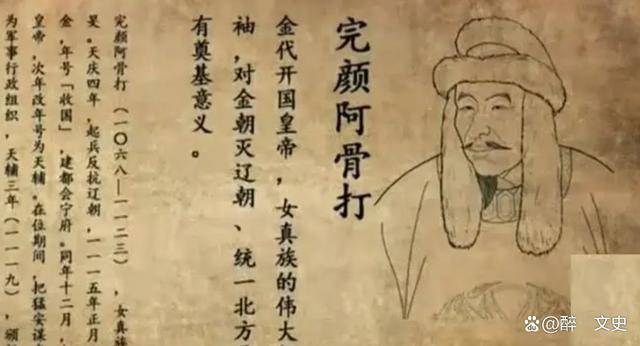 完颜阿骨打
金代开国皇帝，女真族的伟大
袖，对金朝灭辽朝、统一北方
有奠基意义。
完颜阿骨打（一〇六八—一一二三），女真族
旻。天庆四年，起兵反抗辽朝，一一一五年正月
金，年号「收国」，建都会宁府。同年十二月，
皇帝，次年改年号为天辅。在位期间，把猛安谋
为军事行政组织，天辅三年（一一一九），颁
@醉 文史